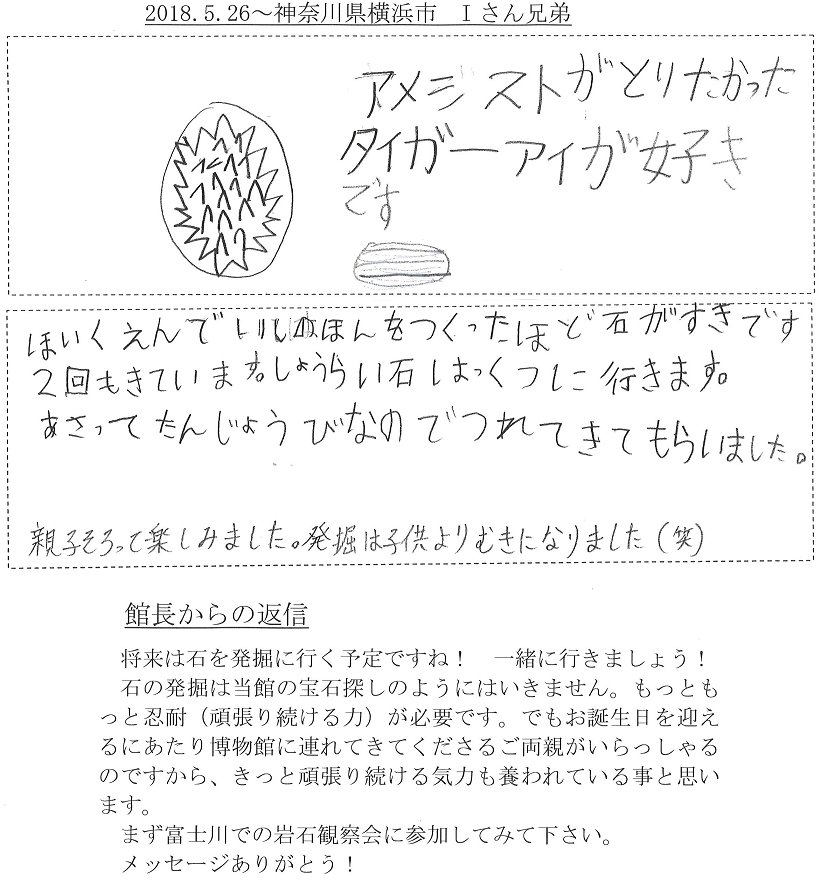 2018.5.26～神奈川県横浜市　Ｉさん兄弟
アメジストがとりたかった
タイガーアイが好き
です
ほいくえんで ほんをつくったほど石がすきです
2回もきています。しょうらい石はっくつに行きます。
あさってたんじょうびなのでつれてきてもらいました。
親子そろって楽しみました。発掘は子供よりむきになりました(笑)
館長からの返信
将来は石を発掘に行く予定ですね！　一緒に行きましょう！
石の発掘は当館の宝石探しのようにはいきません。もっとも
っと忍耐（頑張り続ける力）が必要です。でもお誕生日を迎え
るにあたり博物館に連れてきてくださるご両親がいらっしゃる
のですから、きっと頑張り続ける気力も養われている事と思い
ます。
まず富士川での岩石観察会に参加してみて下さい。
メッセージありがとう！